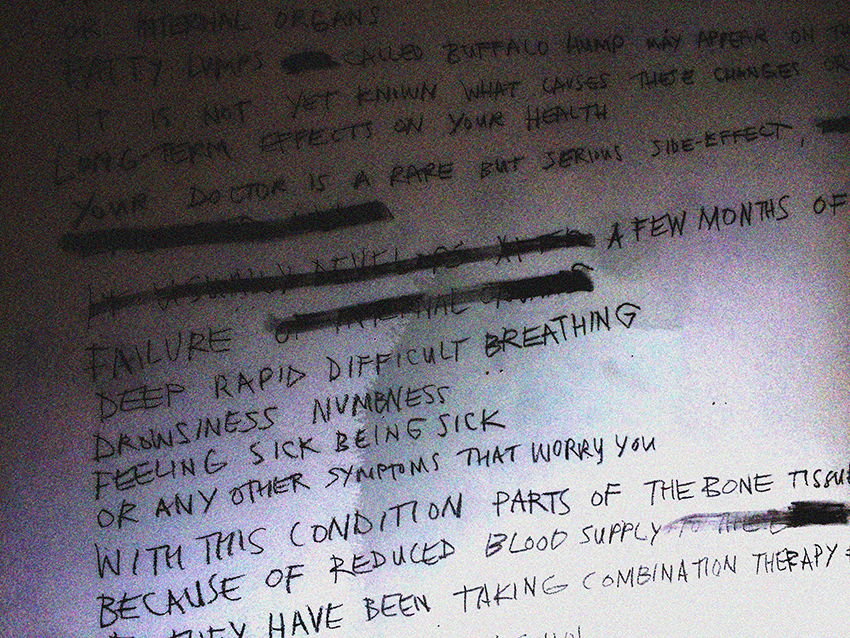 OR INTERNAL ORGANS
FATTY LUMPS CALLED BUFFALO HUMP MAY APPEAR ON
IT IS NOT YET KNOWN WHAT CAUSES THESE CHANGES OR
LONG-TERM EFFECTS ON YOUR HEALTH
YOUR DOCTOR IS A RARE BUT SERIOUS SIDE-EFFECT,
IT USUALLY DEVELOPS AFTER A FEW MONTHS OF
FAILURE OF INTERNAL ORGANS
DEEP RAPID DIFFICULT BREATHING
DROWSINESS NUMBNESS
FEELING SICK BEING SICK
OR ANY OTHER SYMPTOMS THAT WORRY YOU
WITH THIS CONDITION PARTS OF THE BONE TISSUE
BECAUSE OF REDUCED BLOOD SUPPLY TO THE
THEY HAVE BEEN TAKING COMBINATION THERAPY